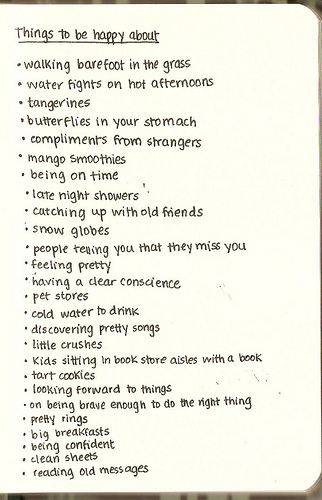 Things to be happy about
• walking barefoot in the grass
• water fights on hot afternoons
• tangerines
• butterflies in your stomach
• compliments from strangers
• mango smoothies
• being on time
• late night showers
• catching up with old friends
• snow globes
• people telling you that they miss you
• feeling pretty
• having a clear conscience
• pet stores
• cold water to drink
• discovering pretty songs
• little crushes
• kids sitting in book store aisles with a book
• tart cookies
• looking forward to things
• on being brave enough to do the right thing
• pretty rings
• big breakfasts
• being confident
• clean sheets
• reading old messages